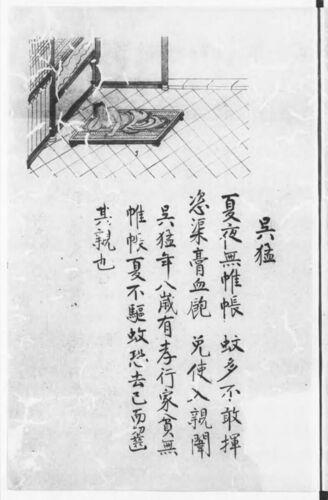 吳猛
夏夜無帷帳 蚊多不敢揮
恣渠膏血飽 免使入親闈
吳猛年八歲有孝行家貧無
帷帳夏不驅蚊恐去己而噬
其親也